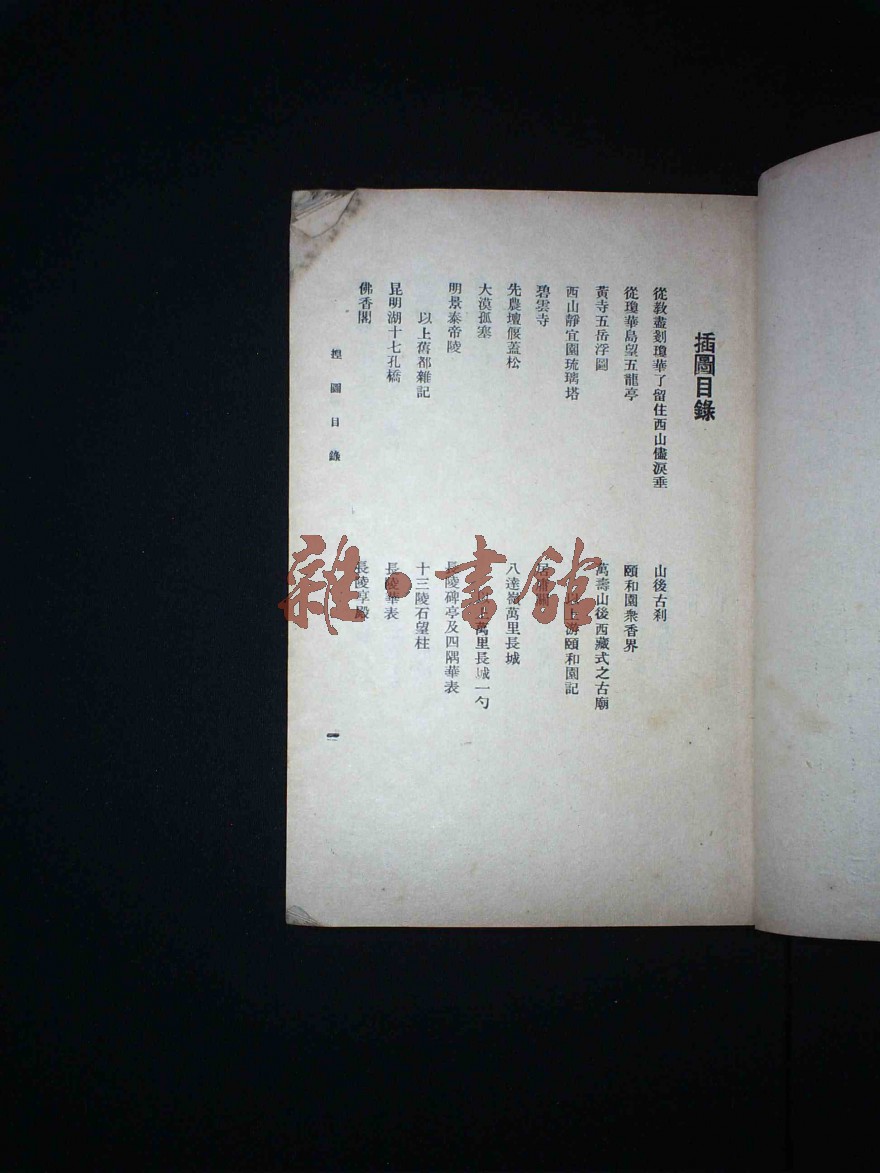 插圖目錄
從教盡剗瓊華了留住西山儘淚垂
從瓊華島望五龍亭
黃寺五岳浮圖
西山靜宜園琉璃塔
碧雲寺
先農壇偃蓋松
大漠孤塞
明景泰帝陵
以上舊都雜記
昆明湖十七孔橋
佛香閣
山後古刹
頤和園衆香界
萬壽山後西藏式之古廟
以上游頤和園記
八達嶺萬里長城
以上萬里長城一勺
長陵碑亭及四隅華表
十三陵石望柱
長陵華表
長陵享殿
插圖目錄
一
雜·書館